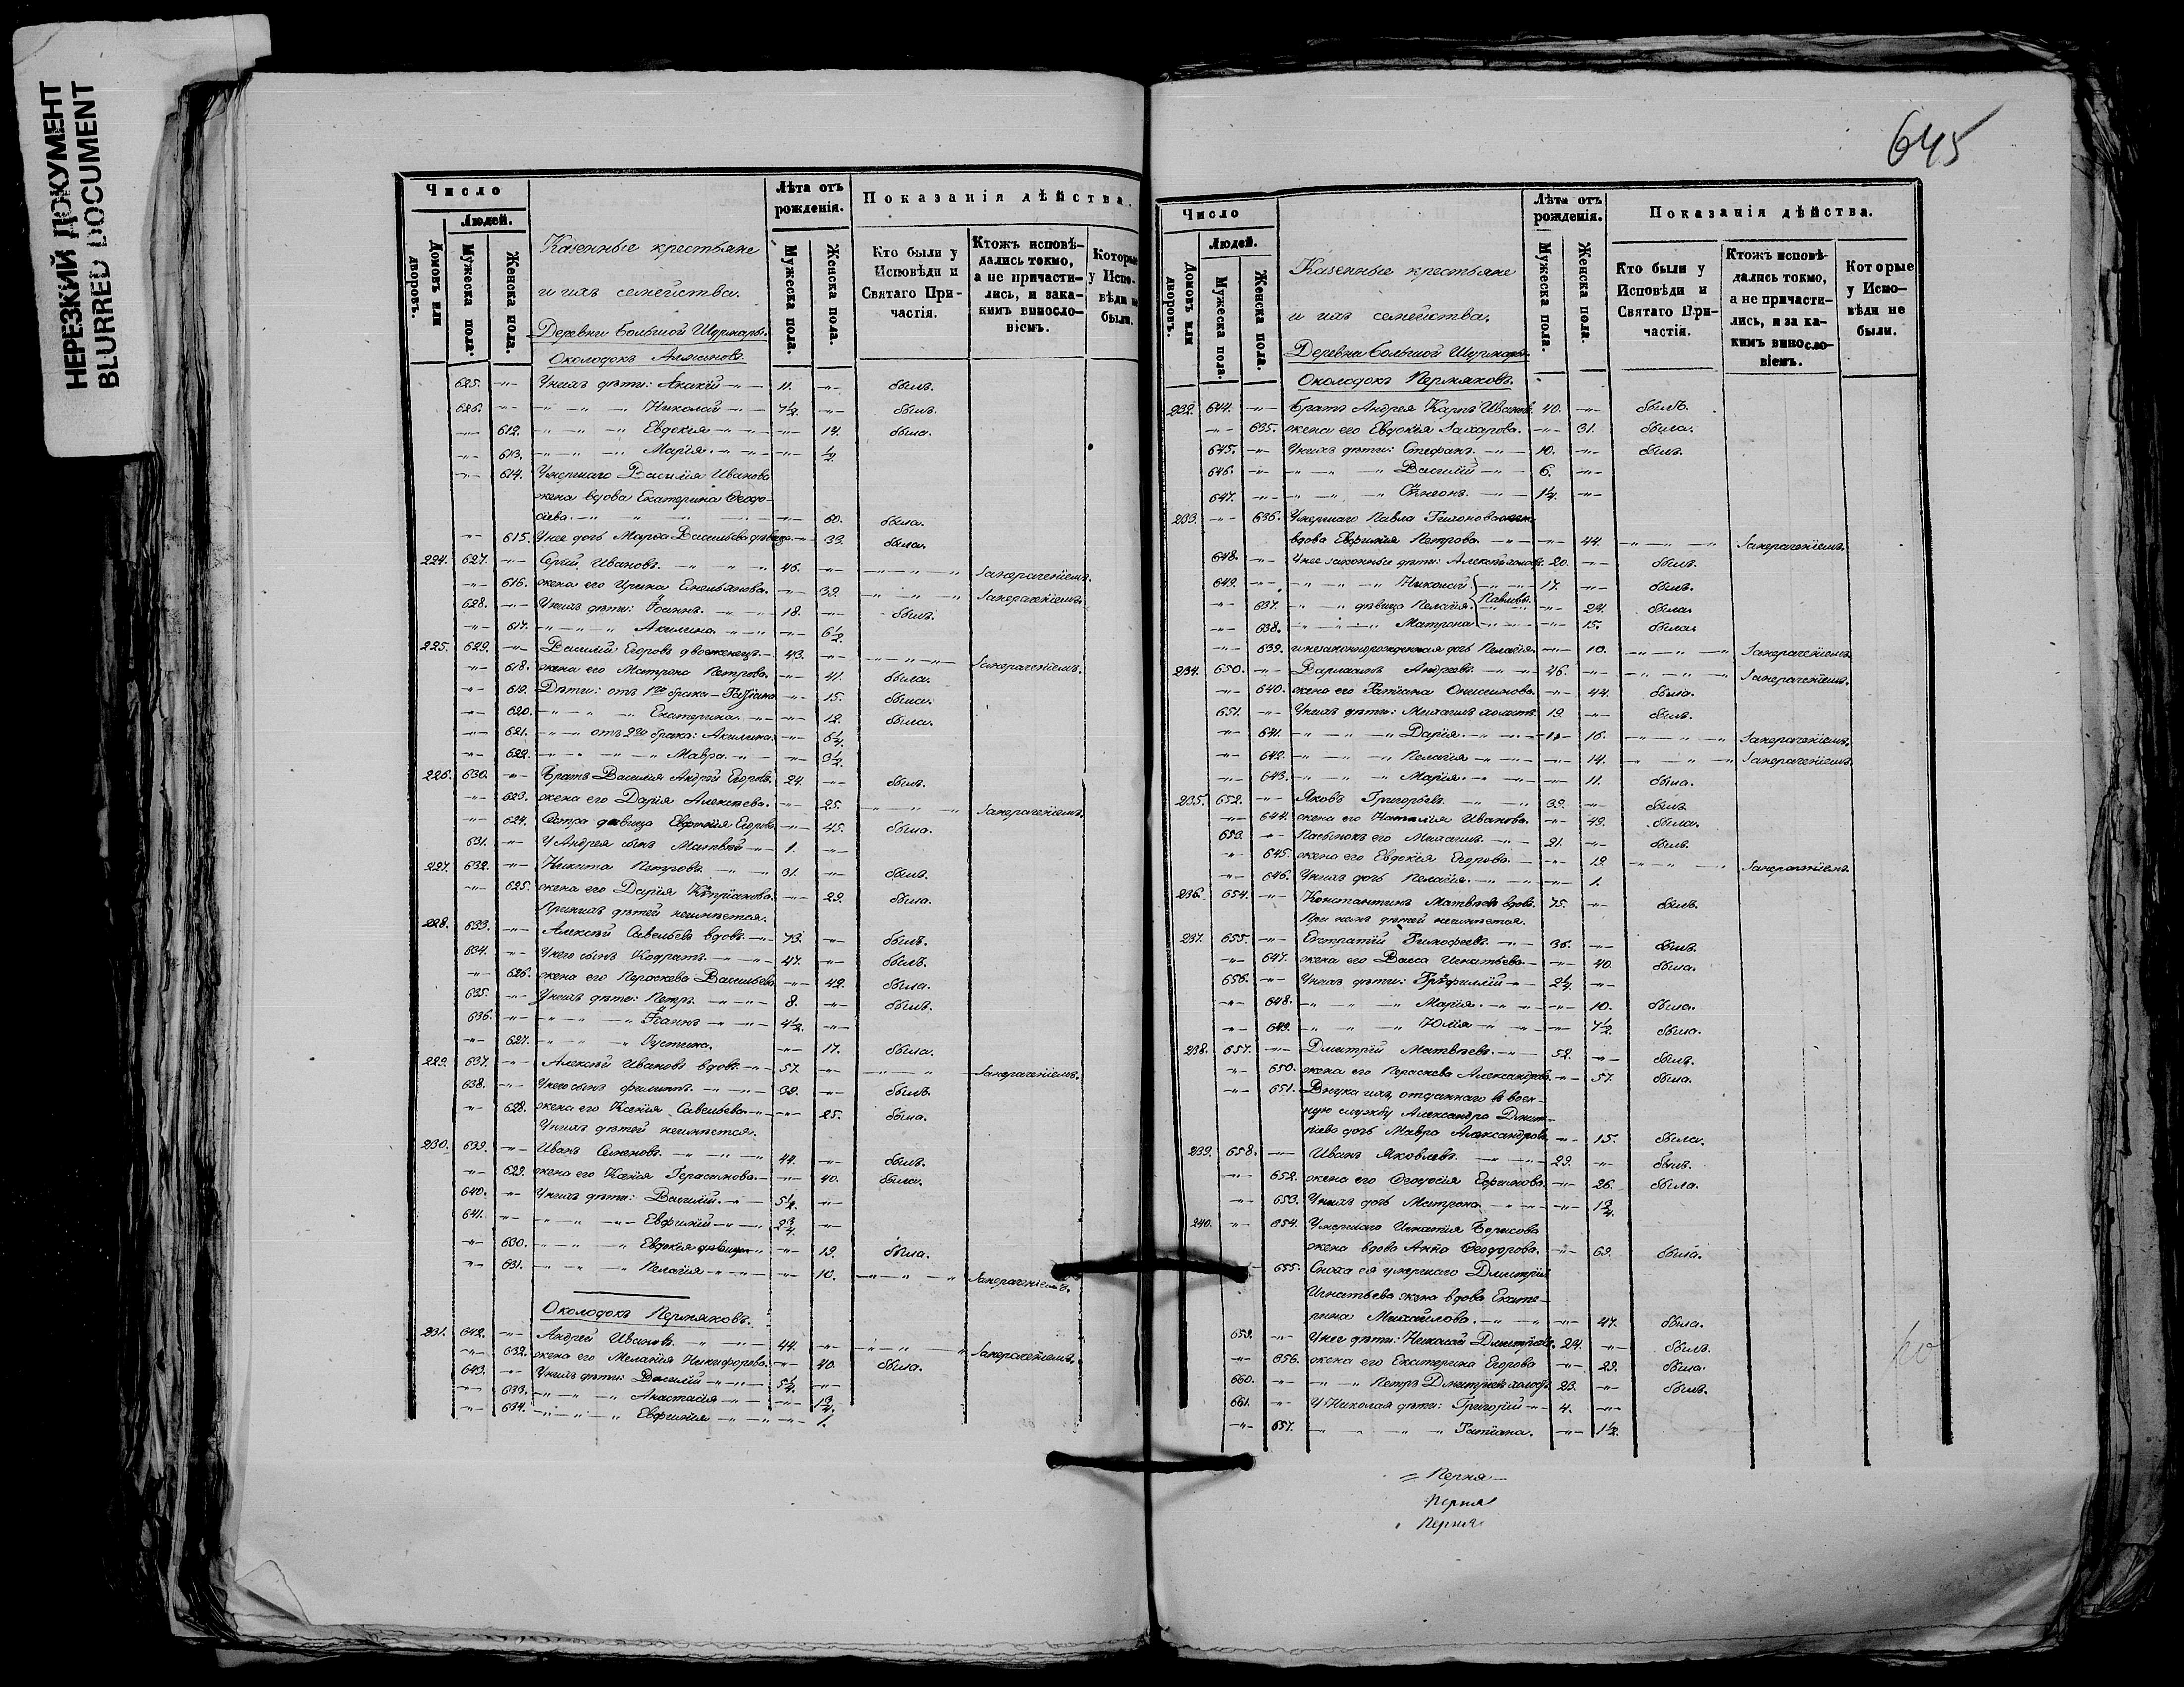 НЕРЕЗКИЙ ДОКУМЕНТ
BLURRED DOCUMENT
Число
Людей.
Домовъ или дворовъ.
Мужеска пола.
Женска пола.
Казенные крестьяне
и ихъ семейства.
Деревни Большой Шурмары.
Околодокъ
Лѣта отъ рожденія.
Мужеска пола.
Женска пола.
Показанія дѣйства.
Кто были у Исповѣди и Святаго При-частія.
Ктожъ исповѣ-дались токмо, а не причасти-лись, и зака-кимъ виносло-віемъ.
Которые у Испо-вѣди не были.
625. -"- У нихъ дѣти: Акакій 11. -"- былъ.
626. -"- Николай 7½ -"- былъ.
-"- 612. Евдокія -"- 14. была.
-"- 613. Марія -"- ½.
-"- 614. Умершаго Василія Иванова
жена вдова Екатерина Ѳеодо-
сіева. -"- 60. была.
-"- 615. У нее дочь Марѳа Васильева дѣвица -"- 33. была.
224. 627. -"- Сергій Ивановъ. 46. -"- Занерачениемъ.
-"- 616. жена его Ирина Емельянова. -"- 39. Занерачениемъ.
628. -"- У нихъ дѣти: Іоаннъ. 18. -"- былъ.
-"- 617. Акилина -"- 6½.
225. 629. -"- Василій Егоровъ двоеженецъ. 43. -"- Занерачениемъ.
-"- 618. жена его Матрона Петрова. -"- 41. была.
-"- 619. Дѣти: отъ 1го брака - Татіана -"- 15. была.
-"- 620. Екатерина -"- 12. была.
-"- 621. отъ 2го брака: Акилина -"- 6¼.
-"- 622. Мавра -"- 3½.
226. 630. -"- Братъ Василія Андрей Егоровъ. 24. -"- былъ.
-"- 623. жена его Дарія Алексѣева. -"- 25. Занерачениемъ.
-"- 624. Сестра дѣвица Евфимія Егорова -"- 45. была.
631. -"- У Андрея сынъ Матвей 1. -"-
227. 632. -"- Никита Петровъ. 31. -"- былъ.
-"- 625. жена его Дарія Кипріанова. -"- 29. была.
При нихъ дѣтей неимѣется.
228. 633. -"- Алексѣй Савельевъ вдовъ. 73. -"- былъ.
634. -"- У него сынъ Кодратъ. 47. -"- былъ.
-"- 626. жена его Параскева Васильева -"- 42. была.
635. -"- У нихъ дѣти: Петръ 8. -"- былъ.
636. -"- Іоаннъ 4½. -"-
-"- 627. Іустина. -"- 17. была.
229. 637. -"- Алексѣй Ивановъ вдовъ. 57. -"- Занерачениемъ.
638. -"- У него сынъ Филиппъ. 32. -"- былъ.
-"- 628. жена его Ксенія Савельева -"- 25. была.
У нихъ дѣтей неимѣется.
230. 639. -"- Иванъ Семеновъ. 44. -"- былъ.
-"- 629. жена его Ксенія Герасимова. -"- 40. была.
640. -"- У нихъ дѣти: Василій. 5½. -"-
641. -"- Евфимій 2¾. -"-
-"- 630. Евдокія дѣвица -"- 19. была.
-"- 631. Пелагія -"- 10. Занерачениемъ.
Околодокъ Пермяковъ.
231. 642. -"- Андрей Ивановъ. 44. -"- Занерачениемъ.
-"- 632. жена его Меланія Никифорова. -"- 40. была.
643. -"- У нихъ дѣти: Василій 5¼. -"-
-"- 633. Анастасія -"- 1¾.
-"- 634. Евфимія -"- 1.
645
Число
Людей.
Домовъ или дворовъ.
Мужеска пола.
Женска пола.
Казенные крестьяне
и ихъ семейства.
Деревни Большой Шурмары.
Околодокъ Пермяковъ.
Лѣта отъ рожденія.
Мужеска пола.
Женска пола.
Показанія дѣйства.
Кто были у Исповѣди и Святаго При-частія.
Ктожъ исповѣ-дались токмо, а не причасти-лись, и за ка-кимъ виносло-віемъ.
Которые у Испо-вѣди не были.
232. 644. -"- Братъ Андрея Карпъ Ивановъ. 40. -"- былъ.
-"- 635. жена его Евдокія Захарова. -"- 31. была.
645. -"- У нихъ дѣти: Стефанъ. 10. -"- былъ.
646. -"- Василій 6. -"-
647. -"- Сѵмеонъ. 1¼. -"-
233. -"- 636. Умершаго Павла Тихонова жена
вдова Евфимія Петрова. -"- 44. Занерачениемъ.
648. -"- У нее законные дѣти: Алексѣй холостъ. 20. -"- былъ.
649. -"- Николай Павловы. 17. -"- былъ.
-"- 637. дѣвица Пелагія. -"- 24. была.
-"- 638. Матрона -"- 15. была.
-"- 639. и незаконнорожденная дочь Пелагія. -"- 10. Занерачениемъ.
234. 650. -"- Варлаамъ Андреевъ. 46. -"- Занерачениемъ.
-"- 640. жена его Татіана Онисимова. -"- 44. была.
651. -"- У нихъ дѣти: Михаилъ холостъ. 19. -"- былъ.
-"- 641. Дарія. -"- 16. Занерачениемъ.
-"- 642. Пелагія -"- 14. Занерачениемъ.
-"- 643. Марія. -"- 11. была.
235. 652. -"- Яковъ Григорьевъ. 39. -"- былъ.
-"- 644. жена его Наталія Иванова. -"- 49. была.
653. -"- Пасынокъ его Михаилъ. 21. -"- былъ.
-"- 645. жена его Евдокія Егорова. -"- 19. Занерачениемъ.
-"- 646. У нихъ дочь Пелагія. -"- 1.
236. 654. -"- Константинъ Матвѣевъ вдовъ. 75. -"- былъ.
При немъ дѣтей неимѣется.
237. 655. -"- Евстратій Тимофеевъ. 36. -"- былъ.
-"- 647. жена его Васса Игнатьева. -"- 40. была.
656. -"- У нихъ дѣти: Трѵфиллій 2¼. -"-
-"- 648. Марія. -"- 10. была.
-"- 649. Юлія -"- 7½. была.
238. 657. -"- Дмитрій Матвѣевъ. 52. -"- былъ.
-"- 650. жена его Параскева Александрова. -"- 57. была.
-"- 651. Внука ихъ, отданнаго въ воен-
ную службу Александра Дмит-
ріева дочь Мавра Александрова. -"- 15. была.
239. 658. -"- Иванъ Яковлевъ. 29. -"- былъ.
-"- 652. жена его Ѳеодосія Ефимова. -"- 26. была.
-"- 653. У нихъ дочь Матрона. -"- 1¾.
240. -"- 654. Умершаго Игнатія Борисова
жена вдова Анна Ѳеодорова. -"- 69. была.
655. Сноха ея умершаго Дмитрія
Игнатьева жена вдова Екате-
рина Михайлова. -"- 47. была.
659. -"- У нее дѣти: Николай Дмитріевъ. 24. -"- былъ.
-"- 656. жена его Екатерина Егорова -"- 29. была.
660. -"- Петръ Дмитріевъ холостъ 23. -"- былъ.
661. -"- У Николая дѣти: Григорій 4. -"-
-"- 657. Татіана. -"- 1½.
= Пермя-
Пермя
Пермя